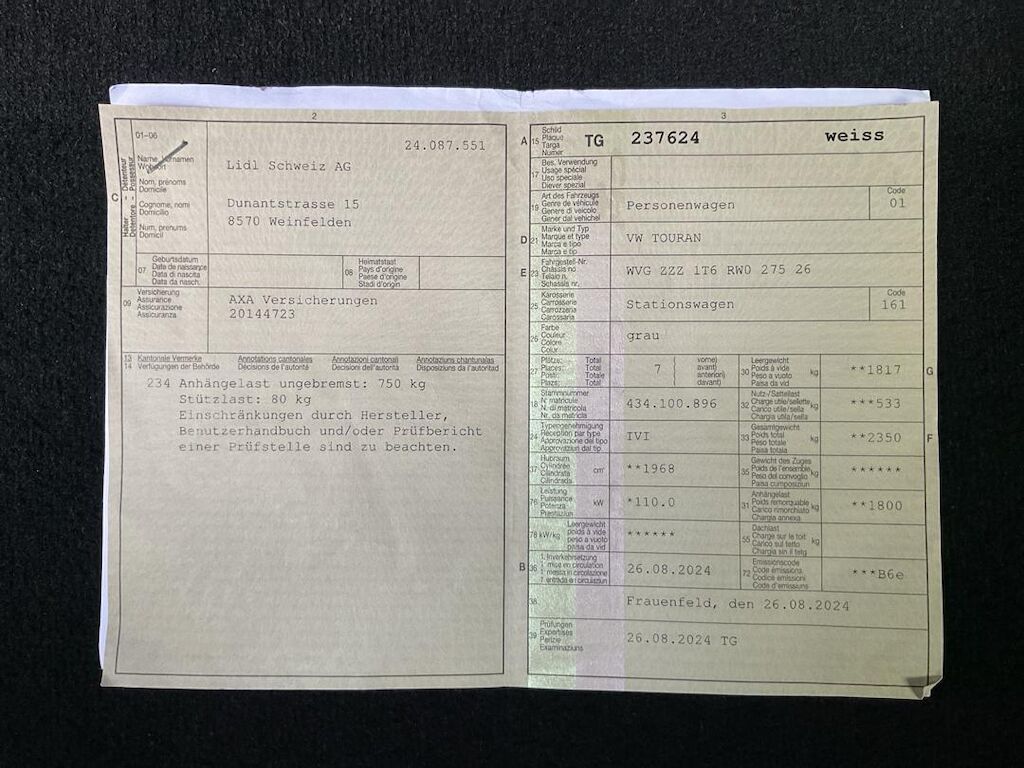 2
01–06
24.087.551
C
Halter – Détenteur
Detentore – Possessur
Name, Vornamen
Wohnort
Nom, prénoms
Domicile
Cognome, nomi
Domicilio
Num, prenums
Domicil
Lidl Schweiz AG
Dunantstrasse 15
8570 Weinfelden
07
Geburtsdatum
Date de naissance
Data di nascita
Data da nasch.
08
Heimatstaat
Pays d'origine
Paese d'origine
Stadi d'origin
09
Versicherung
Assurance
Assicurazione
Assicuranza
AXA Versicherungen
20144723
13 Kantonale Vermerke Annotations cantonales Annotazioni cantonali Annotaziuns chantunalas
14 Verfügungen der Behörde Décisions de l'autorité Decisioni dell'autorità Disposiziuns da l'autoritad
234 Anhängelast ungebremst: 750 kg
Stützlast: 80 kg
Einschränkungen durch Hersteller,
Benutzerhandbuch und/oder Prüfbericht
einer Prüfstelle sind zu beachten.
3
A 15
Schild
Plaque
Targa
Numer
TG 237624 weiss
17
Bes. Verwendung
Usage spécial
Uso speciale
Diever spezial
19
Art des Fahrzeugs
Genre de véhicule
Genere di veicolo
Gener dal vehichel
Personenwagen
Code
01
D 21
Marke und Typ
Marque et type
Marca e tipo
Marca e tip
VW TOURAN
E 23
Fahrgestell-Nr.
Châssis no
Telaio n.
Schassis nr.
WVG ZZZ 1T6 RW0 275 26
25
Karosserie
Carrosserie
Carrozzeria
Carossaria
Stationswagen
Code
161
26
Farbe
Couleur
Colore
Colur
grau
27
Plätze: Total
Places: Total
Posti: Totale
Plazs: Total
7
vorne)
avant)
anteriori)
davant)
30
Leergewicht
Poids à vide
Peso a vuoto
Paisa da vid
kg
**1817
G
18
Stammnummer
N° matricule
N. di matricola
Nr. da matricla
434.100.896
32
Nutz-/Sattellast
Charge utile/sellette
Carico utile/sella
Chargia utila/sella
kg
***533
24
Typengenehmigung
Réception par type
Approvazione del tipo
Approvaziun dal tip
IVI
33
Gesamtgewicht
Poids total
Peso totale
Paisa totala
kg
**2350
F
37
Hubraum
Cylindrée
Cilindrata
Cilindrada
cm³
**1968
35
Gewicht des Zuges
Poids de l'ensemble
Peso del convoglio
Paisa cumposiziun
kg
******
76
Leistung
Puissance
Potenza
Prestaziun
kW
*110.0
31
Anhängelast
Poids remorquable
Carico rimorchiato
Chargia annexa
kg
**1800
78 kW/kg
Leergewicht
poids à vide
peso a vuoto
paisa da vid
******
55
Dachlast
Charge sur le toit
Carico sul tetto
Chargia sin il tetg
kg
B 36
1. Inverkehrsetzung
1 mise en circulation
1 messa in circolazione
1 entrada en circulaziun
26.08.2024
72
Emissionscode
Code émissions
Codice emissioni
Code d'emissiuns
***B6e
38
Frauenfeld, den 26.08.2024
39
Prüfungen
Expertises
Perizie
Examinaziuns
26.08.2024 TG